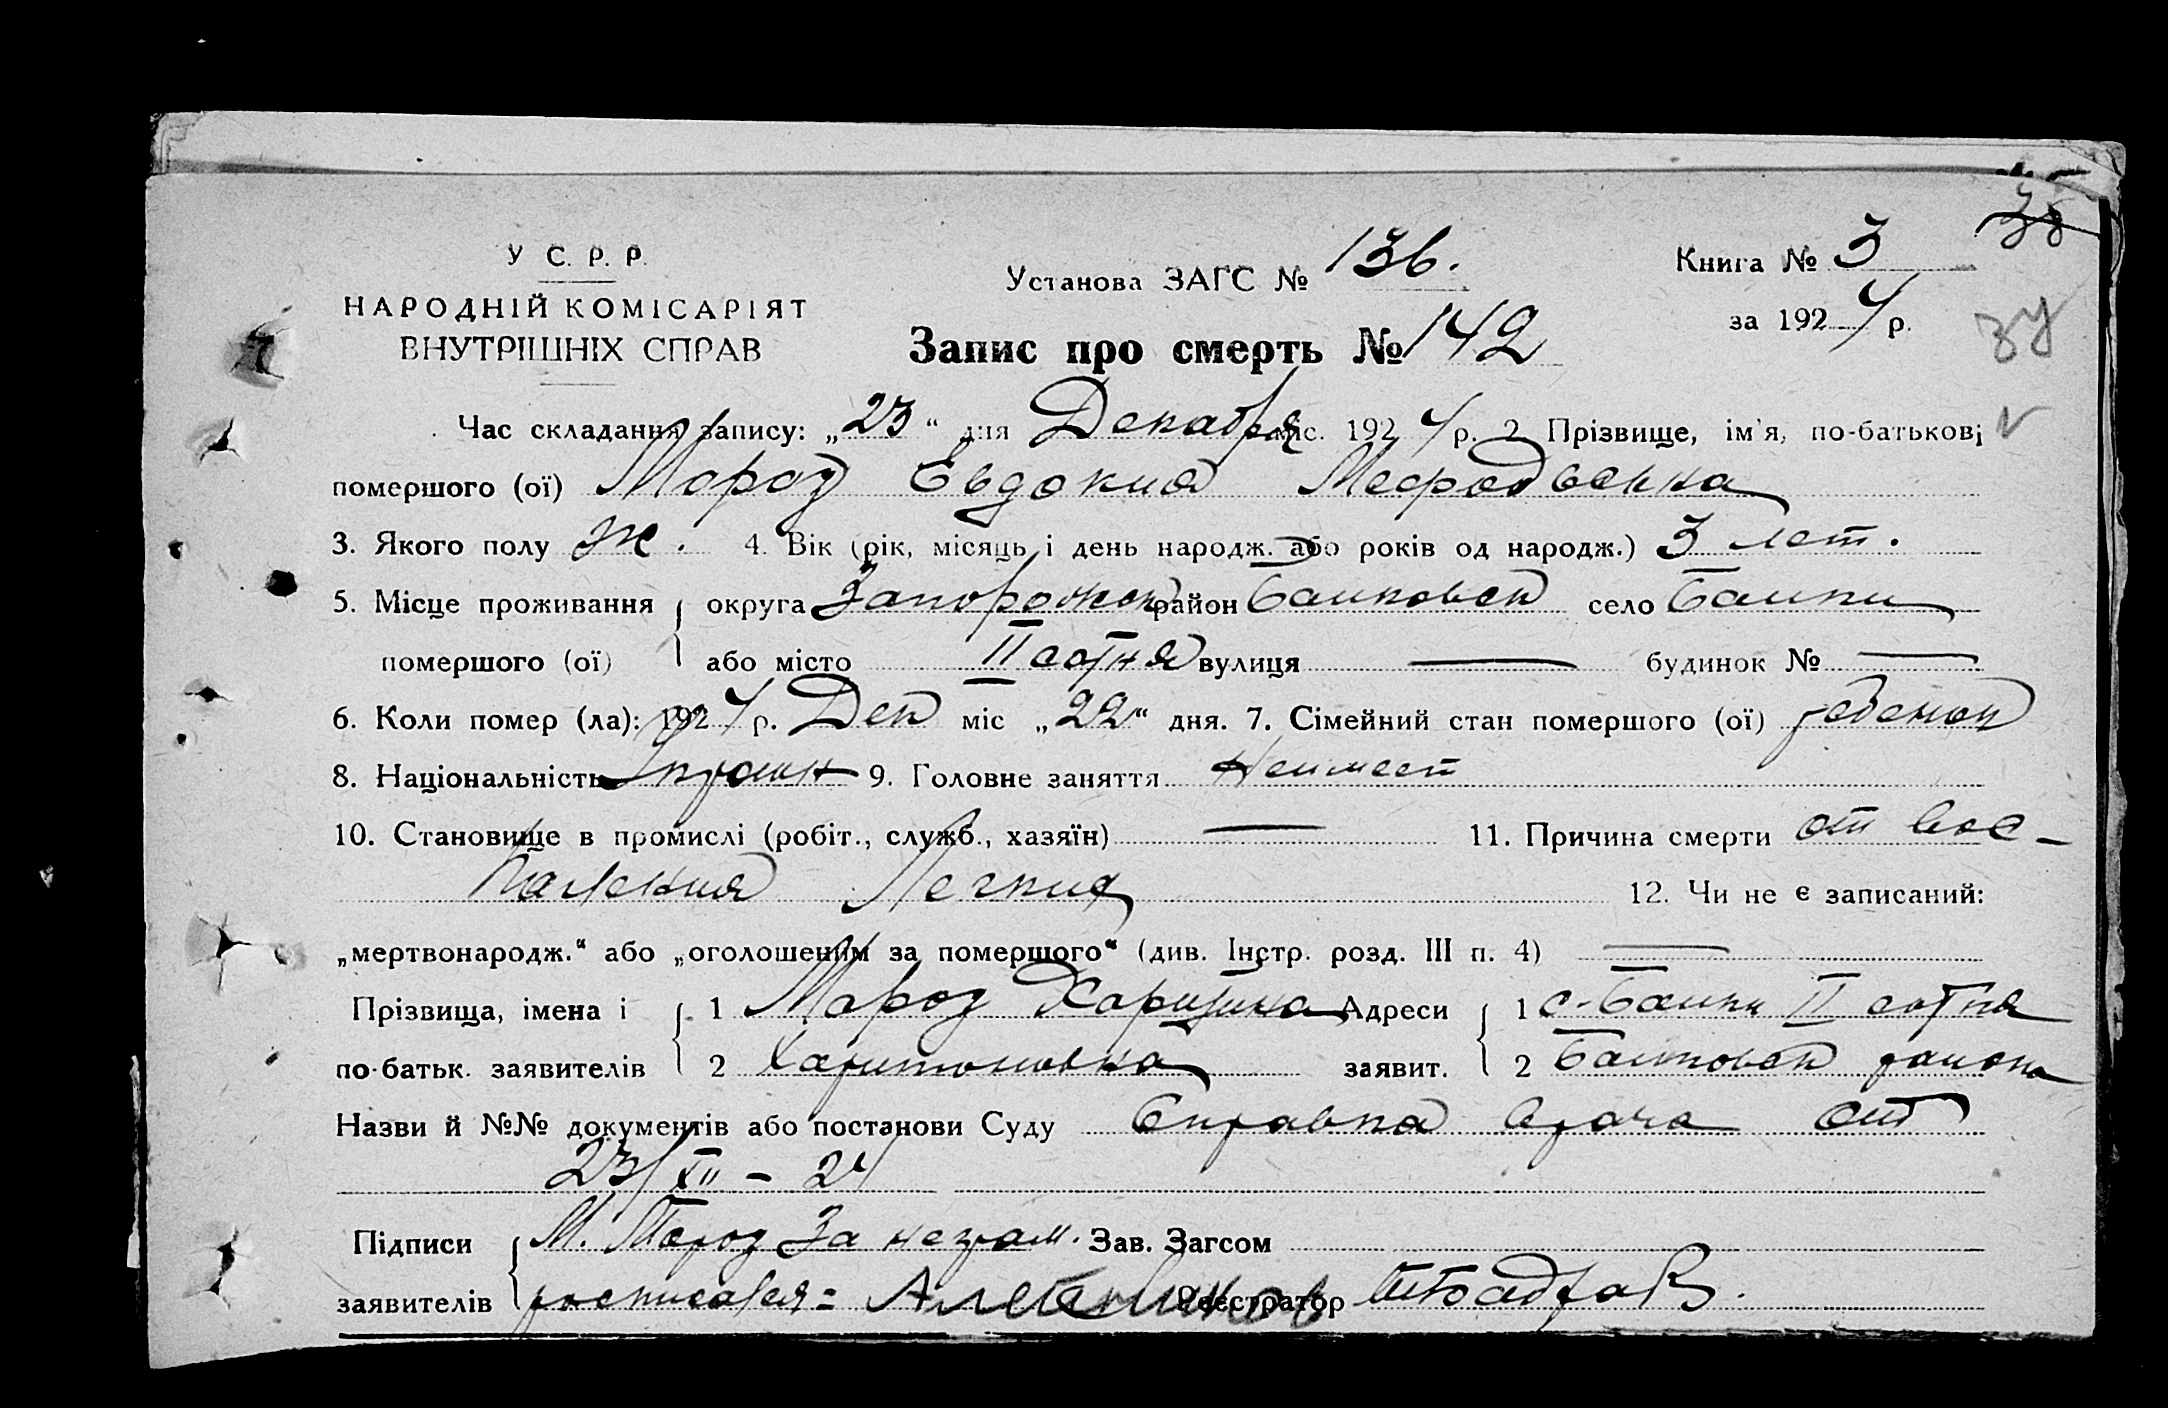 У С. Р. Р.
НАРОДНІЙ КОМІСАРІЯТ
ВНУТРІШНІХ СПРАВ
Установа ЗАГС № 136.
Книга № 3
за 1924 р.
34
Запис про смерть № 142
Час складання запису: „23“ дня Декабря міс. 1924 р. 2 Прізвище, ім'я, по-батькові
помершого (ої) Мороз Евдокия Мефодьевна
3. Якого полу Ж. 4. Вік (рік, місяць і день народж. або років од народж.) 3 лет.
5. Місце проживання округа Запорожск район Балковск село Балки
помершого (ої) або місто II сотня вулиця — будинок № —
6. Коли помер (ла): 1924 р. Дек міс „22“ дня. 7. Сімейний стан помершого (ої) ребенок
8. Національність Украин 9. Головне заняття Неимеет
10. Становище в промислі (робіт., служб., хазяїн) — 11. Причина смерти от вос-
паления Легких 12. Чи не є записаний:
„мертвонародж.“ або „оголошеним за помершого“ (див. Інстр. розд. III п. 4) —
Прізвища, імена і 1 Мороз Харитина Адреси 1 с. Балки II сотня
по-батьк. заявителів 2 Харитоновна заявит. 2 Балковск района
Назви й №№ документів або постанови Суду Справка врача от
23/XII - 24
Підписи М. Мороз За неграм. Зав. Загсом
заявителів росписался: Реєстратор